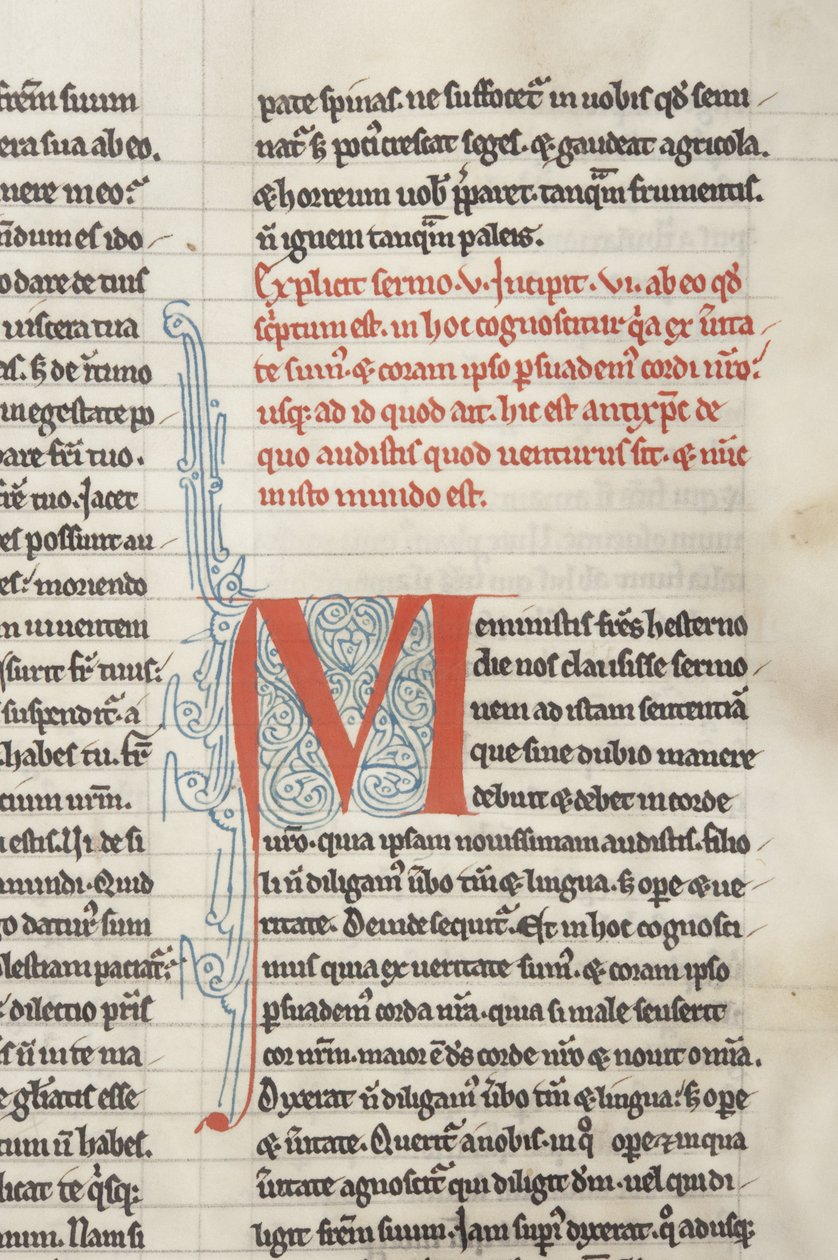 frēm suum
era sua ab eo.
mere meo?
ñdum es ido-
o dare de tuis
uiscera tua
in egestate po-
pare fr̄i tuo.
tuo. Jacet
es possunt au-
es: moriendo
m uiuentem
surit fr̄ tuus:
suspendit᷑. a
habes tu. fr̄
cium ur̄m.
estis. Ui de si
mundi. Quid
o datur᷑ sum
lestiam paciat᷑:
dilectio pr̄is
s n̄ in te ma-
gl̄iatis esse
tum n̄ habes.
dicat te qͥsq:
num. Nam si
pate spinas. ne suffocet᷑ in uobis qđ semi-
nat᷑. s; pociͥ crescat seges. & gaudeat agricola.
& horreum uob̄ p̄paret. tanq̄m frumentis.
n̄ ignem tanq̄m paleis.
Explicit sermo .v. Incipit .vi. ab eo qđ
scͥptum est. in hoc cognoscitur qͥa ex ūita-
te sumꝰ. & coram ipso ꝑsuademꝰ cordi nr̄o:
usq: ad id quod ait. hic est antixp̄c de
quo audistis quod uenturus sit. & nūc
in isto mundo est.
Meministis fr̄es hesterno
die nos clausisse sermo-
nem ad istam sententiā
que sine dubio manere
debuit & debet in corde
ur̄o. quia ipsam nouissimam audistis. filio-
li n̄ diligamꝰ ūbo tm̄ & lingua. s; oꝑe & ue-
ritate. Deinde sequit᷑. Et in hoc cognosci-
mus quia ex ueritate sumꝰ. & coram ipso
ꝑsuademꝰ corda nr̄a. quia si male senserit
cor nr̄m. maior ē đs corde nr̄o & nouit om̄ia.
Dixerat n̄ diligamꝰ ūbo tm̄ & lingua: s; oꝑe
& ūitate. Querit᷑ a nobis. in qͦ oꝑe ⁊ in qua
ūitate agnoscit᷑ qui diligit dm̄. uel qui di-
ligit frēm suum. Jam supͥ dixerat. qͦ adusq: